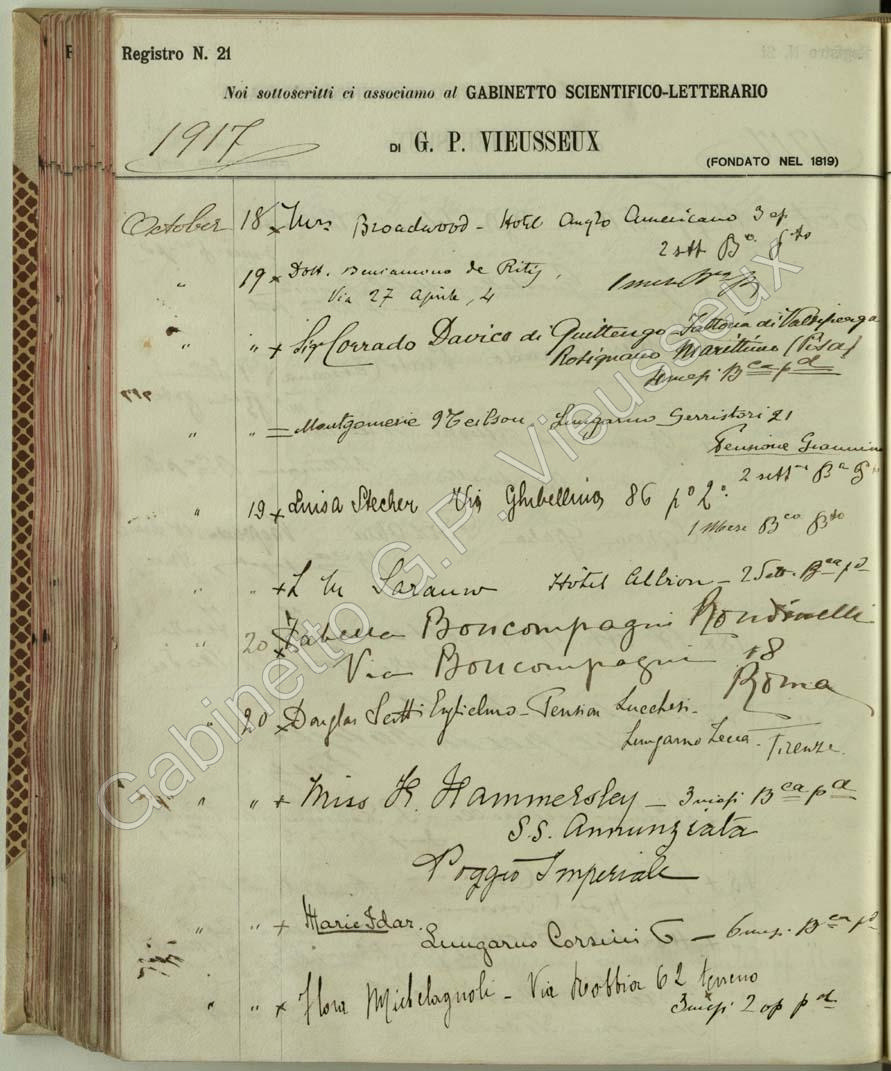 Registro N. 21
Noi sottoscritti ci associamo al GABINETTO SCIENTIFICO-LETTERARIO
1917
DI G. P. VIEUSSEUX
(FONDATO NEL 1819)
October 18 x Mrs Broadwood - Hotel Anglo Americano 3 op
2 sett Bca
" 19 x Dott. Beniamino de
Via 27 Aprile, 4
1 mese
" " x Sigr Corrado Davico di Quittengo - Fattoria di
Rosignano Marittimo (Pisa)
Bca pd
" " = Montgomerie Neilson. Lungarno Serristori 21
Pensione
2 sett
" 19 x Luisa Stecher Via Ghibellina 86 po 2o.
1 Mese Bca
" " x L M Hotel Albion - 2 Sett. Bca pd
20 x Isabella Boncompagni Rondinelli
Via Boncompagni
Roma
" 20 x Douglas Guglielmo - Pension Lucchesi.
Lungarno Zecca. Firenze.
" " x Miss H. Hammersley - 3 mesi Bca pd
S.S. Annunziata
Poggio Imperiale
" " x Marie Idar.
Lungarno Corsini 6 - 6 mesi Bca pd
" " x Flora Michelagnoli - Via Robbia 62 terreno
3 mesi 2 op pd
Gabinetto G.P. Vieusseux